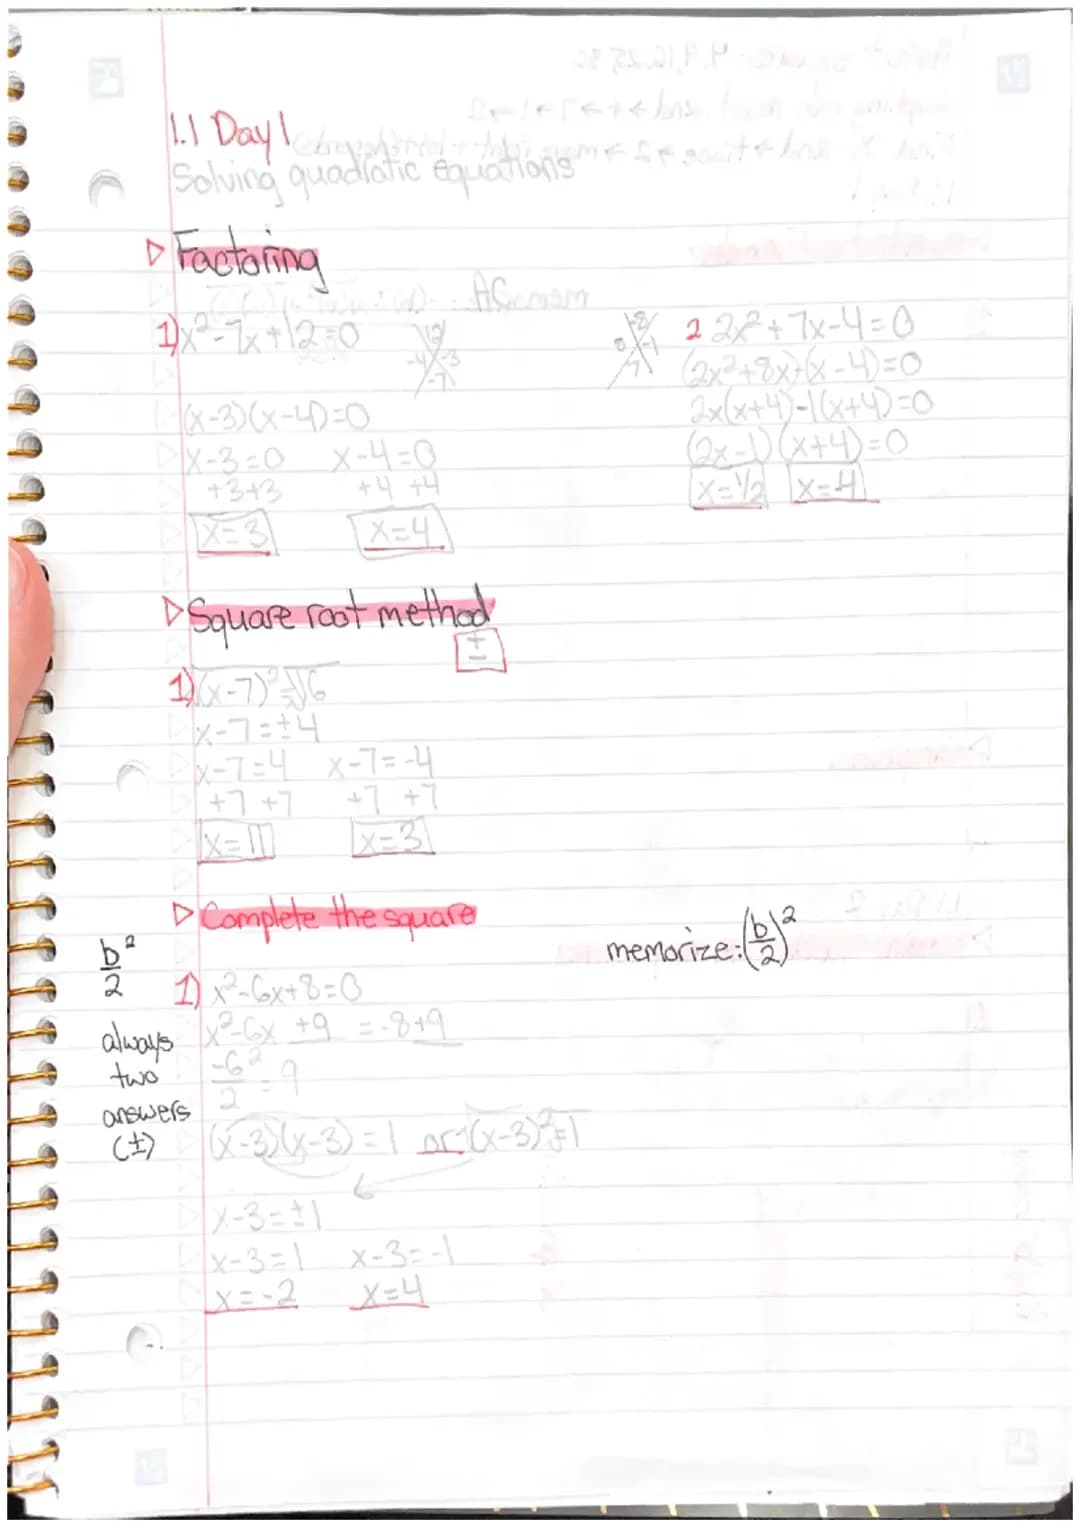 1.1 Day 1
Solving quadratic equations
▷ Factoring
AC mom
1) x²-7x+12=0
12
-4 -3
-7
(x-3)(x-4)=0
x-3=0 x-4=0
+3+3 +4 +4
x=3 x=4
-8
8 -1
7
2 2x²+7x-4=0
(2x²+8x)-(x-4)=0
2x(x+4)-1(x+4)=0
(2x-1)(x+4)=0
x=1/2 x=4
▷ Square root method
±
1) √(x-7)²=√16
x-7=±4
x-7=4 x-7=-4
+7 +7 +7 +7
x=11 x=3
▷ Complete the square
memorize: (b/2)²
b²/2
always
two
answers
(±)
1) x²-6x+8=0
x²-6x +9 = -8+9
-6²/2 = 9
(x-3)(x-3)=1 or √(x-3)²=√1
x-3=±1
x-3=1 x-3=-1
x=-2 x=4